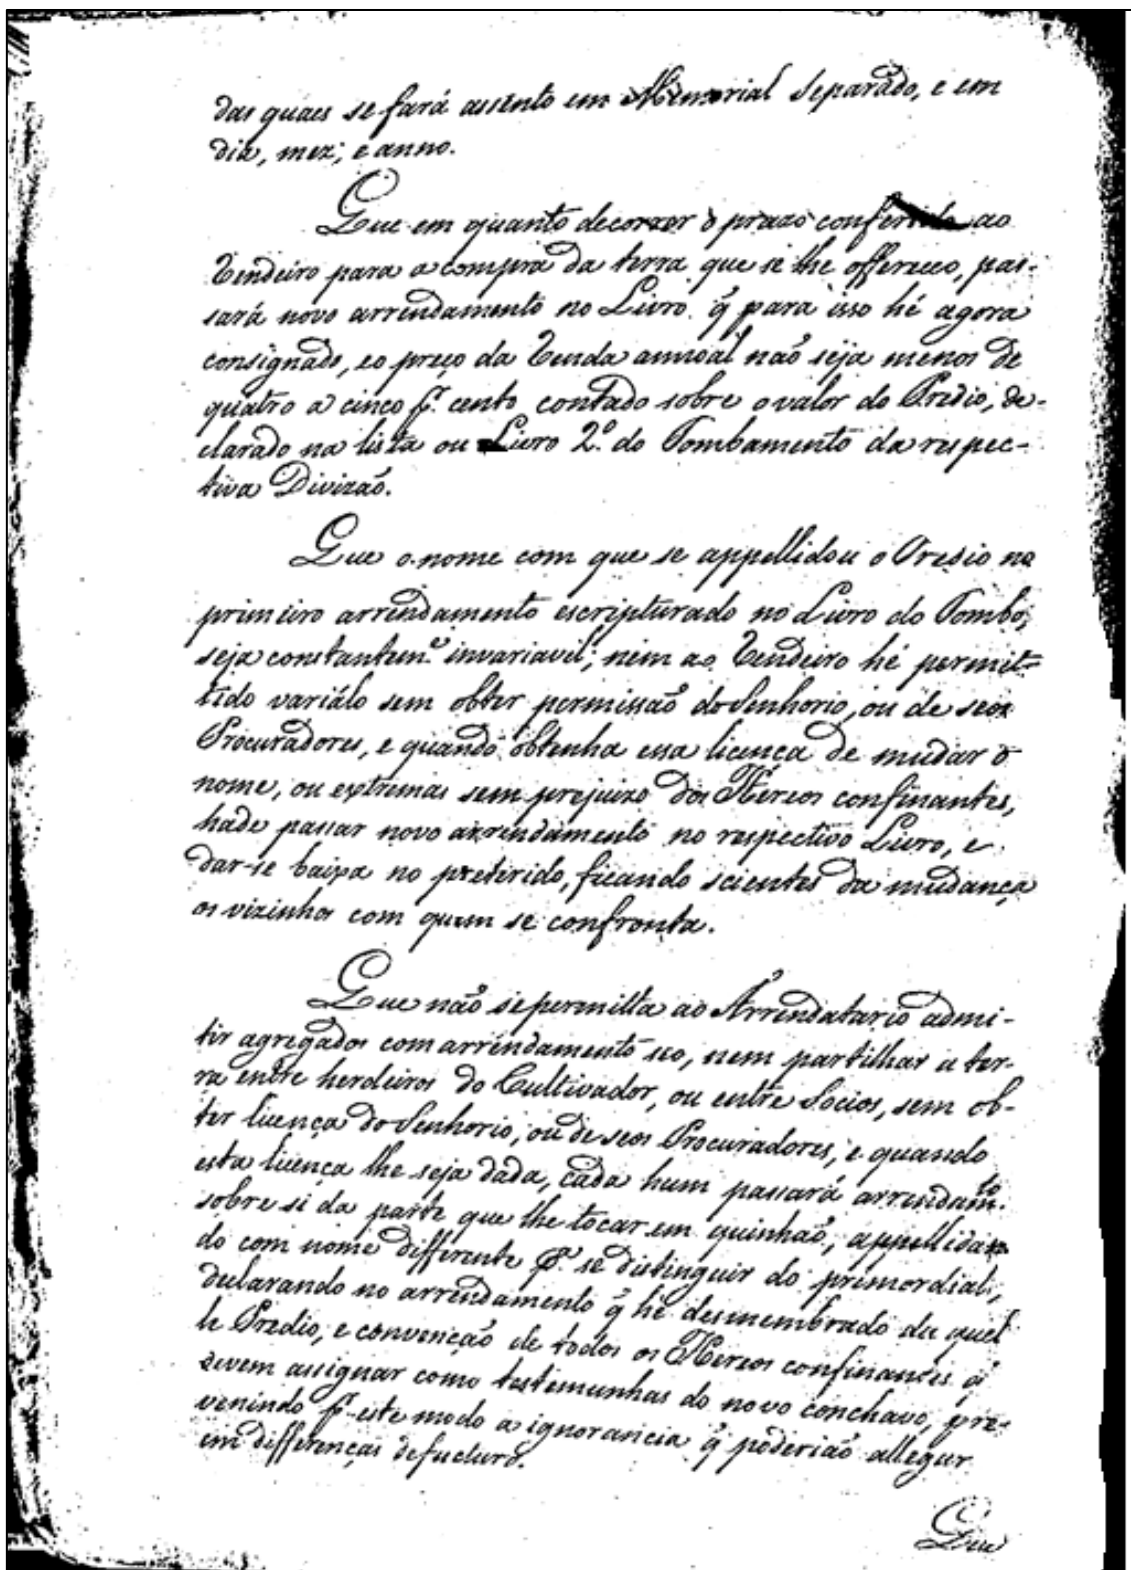 das quaes se fará assento em Memorial Separado, e em
dia, mez, e anno.
Que em quanto decorrer o prazo conferido ao
Rendeiro para a compra da terra que se lhe offereceo, pas-
sará novo arrendamento no Livro q̃ para isso hé agora
consignado, e o preço da Renda annoal não seja menos de
quatro a cinco p.r cento contado sobre o valor do Predio, de-
clarado na lista ou Livro 2.º do Tombamento da respec-
tiva Divizão.
Que o nome com que se appellidou o Predio no
primeiro arrendamento escripturado no Livro do Tombo,
seja constantem.e invariavel; nem ao Rendeiro hé permit-
tido variálo sem obter permissão do Senhorio, ou de seos
Procuradores, e quando obtenha essa licença de mudar o
nome, ou extremas sem prejuizo dos Hereos confinantes,
hade passar novo arrendamento no respectivo Livro, e
dar-se baixa no preterido, ficando scientes da mudança
os vizinhos com quem se confronta.
Que não se permitta ao Arrendatario admi-
tir agregados com arrendamento seo, nem partilhar a ter-
ra entre herdeiros do Cultivador, ou entre Socios, sem ob-
ter licença do Senhorio, ou de seos Procuradores, e quando
esta licença lhe seja dada, cada hum passará arrendam.to
sobre si da parte que lhe tocar em quinhão, appellidan
do com nome differente p.a se distinguir do primordial,
declarando no arrendamento q̃ hé desmembrado daquel
le Predio, e convenção de todos os Hereos confinantes q̃
devem assignar como testemunhas do novo conchavo, pre-
venindo p.r este modo a ignorancia q̃ poderião allegar
em differenças de fucturo.
Que